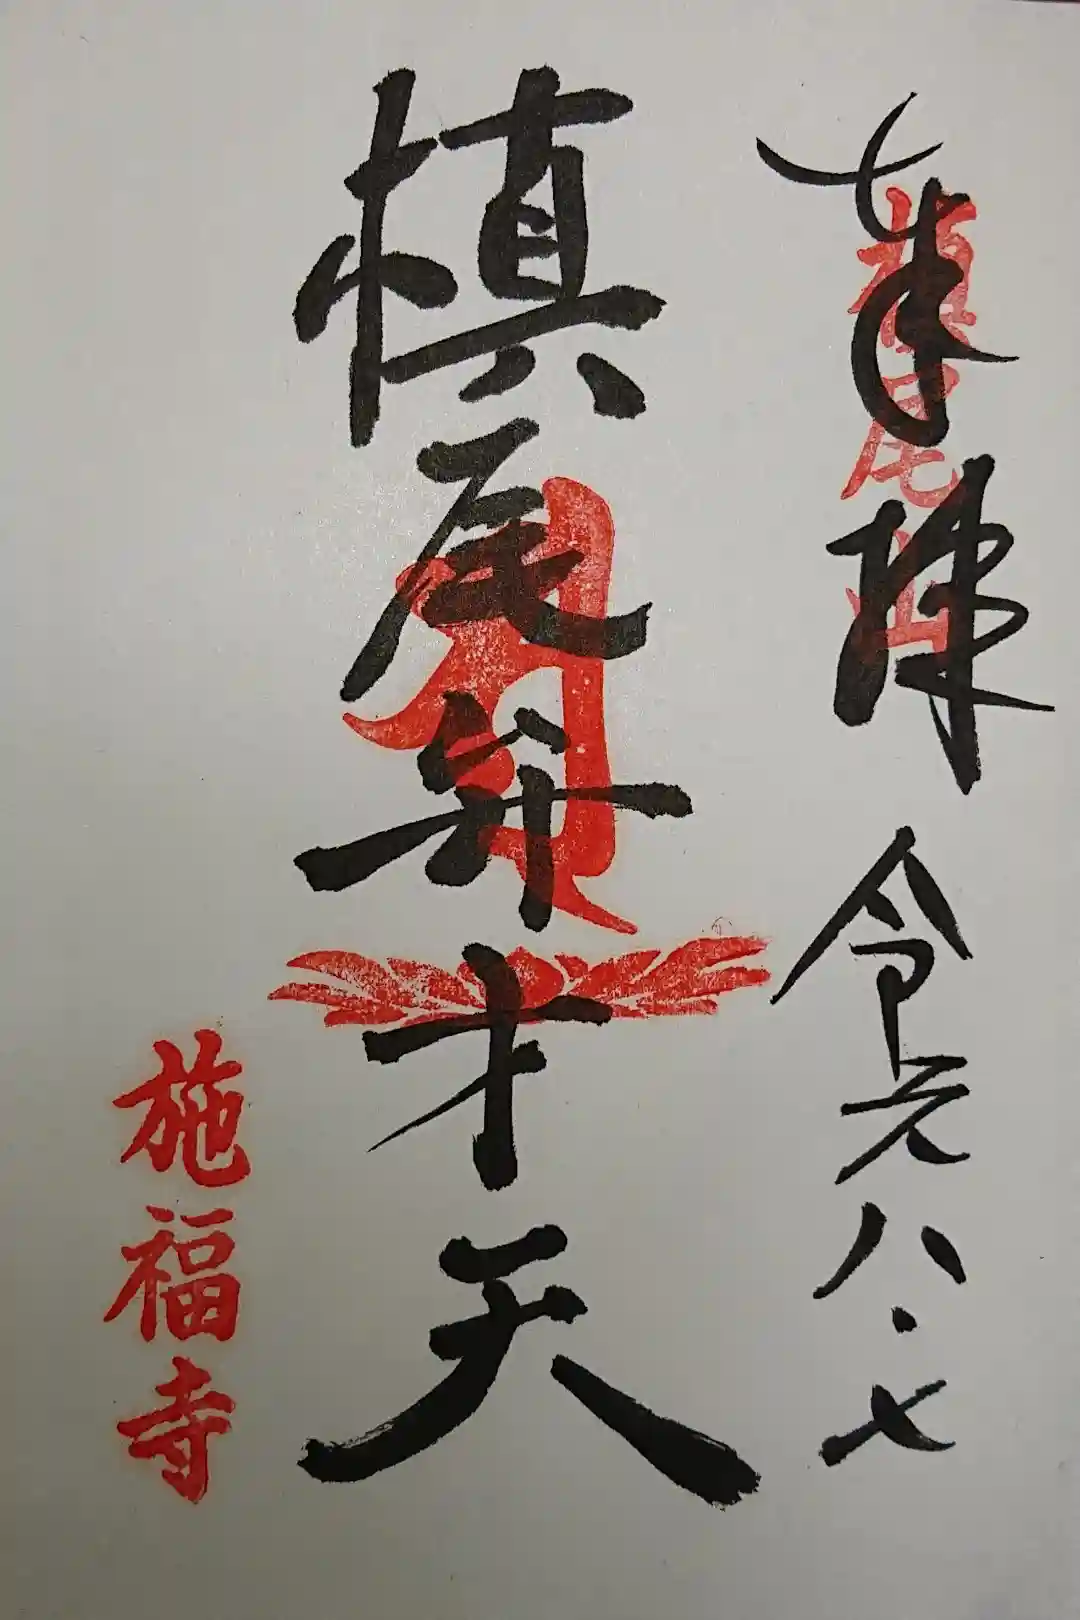 奉拝 令元八・七
槇尾山
槇尾弁才天
施福寺